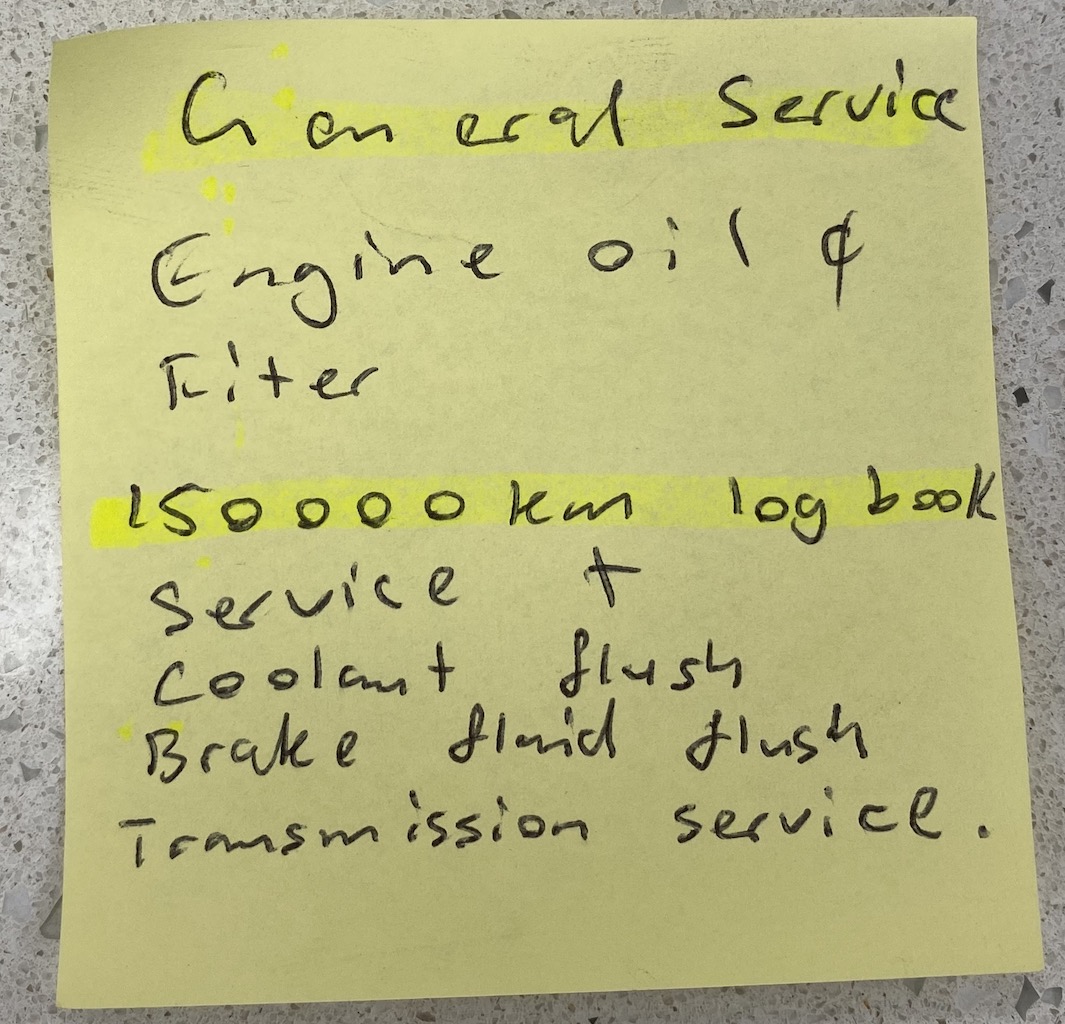 General Service
Engine oil &
Fiter
150000 km log book
Service +
Coolant flush
Brake fluid flush
Transmission service.